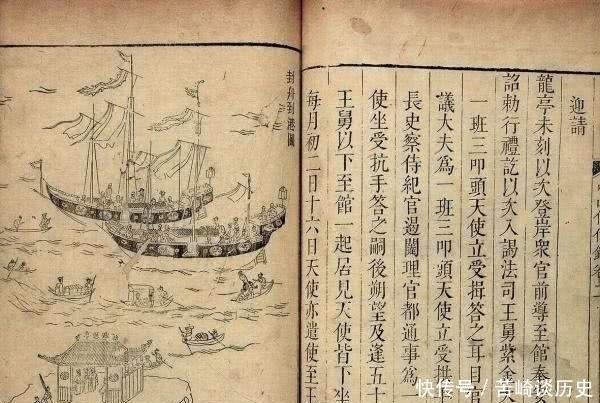 迎請
龍亭未刻以次登岸衆官前導至館奉安
詔勅行禮訖以次入謁法司王舅紫金
一班三叩頭天使立受揖答之耳目官
議大夫爲一班三叩頭天使立受拱
長史察侍紀官遏闥理官都通事爲一
使坐受抗手答之嗣後朔望及逢五十
王舅以下至館一起居見天使皆下坐
每月初二日十六日天使亦遣使至王
封舟到港圖
快传号 / 苦崎谈历史